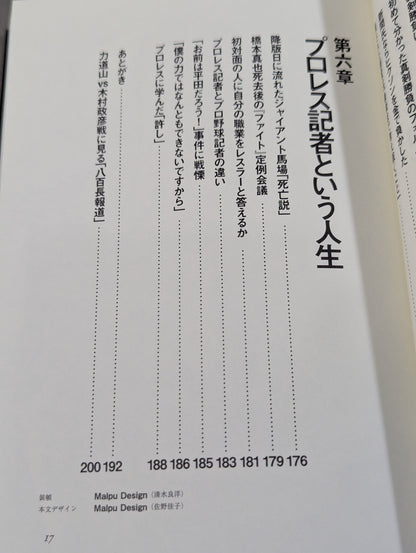 第六章
プロレス記者という人生
降版日に流れたジャイアント馬場「死亡説」 176
橋本真也死去後の『ファイト』定例会議 179
初対面の人に自分の職業をレスラーと答えるか 181
プロレス記者とプロ野球記者の違い 183
「お前は平田だろう!」事件に戦慄 185
「僕の力ではなんともできないですから」 186
プロレスに学んだ「許し」 188
あとがき 192
力道山vs木村政彦戦に見る「八百長報道」 200
装幀 Malpu Design(清水良洋)
本文デザイン Malpu Design(佐野佳子)
17